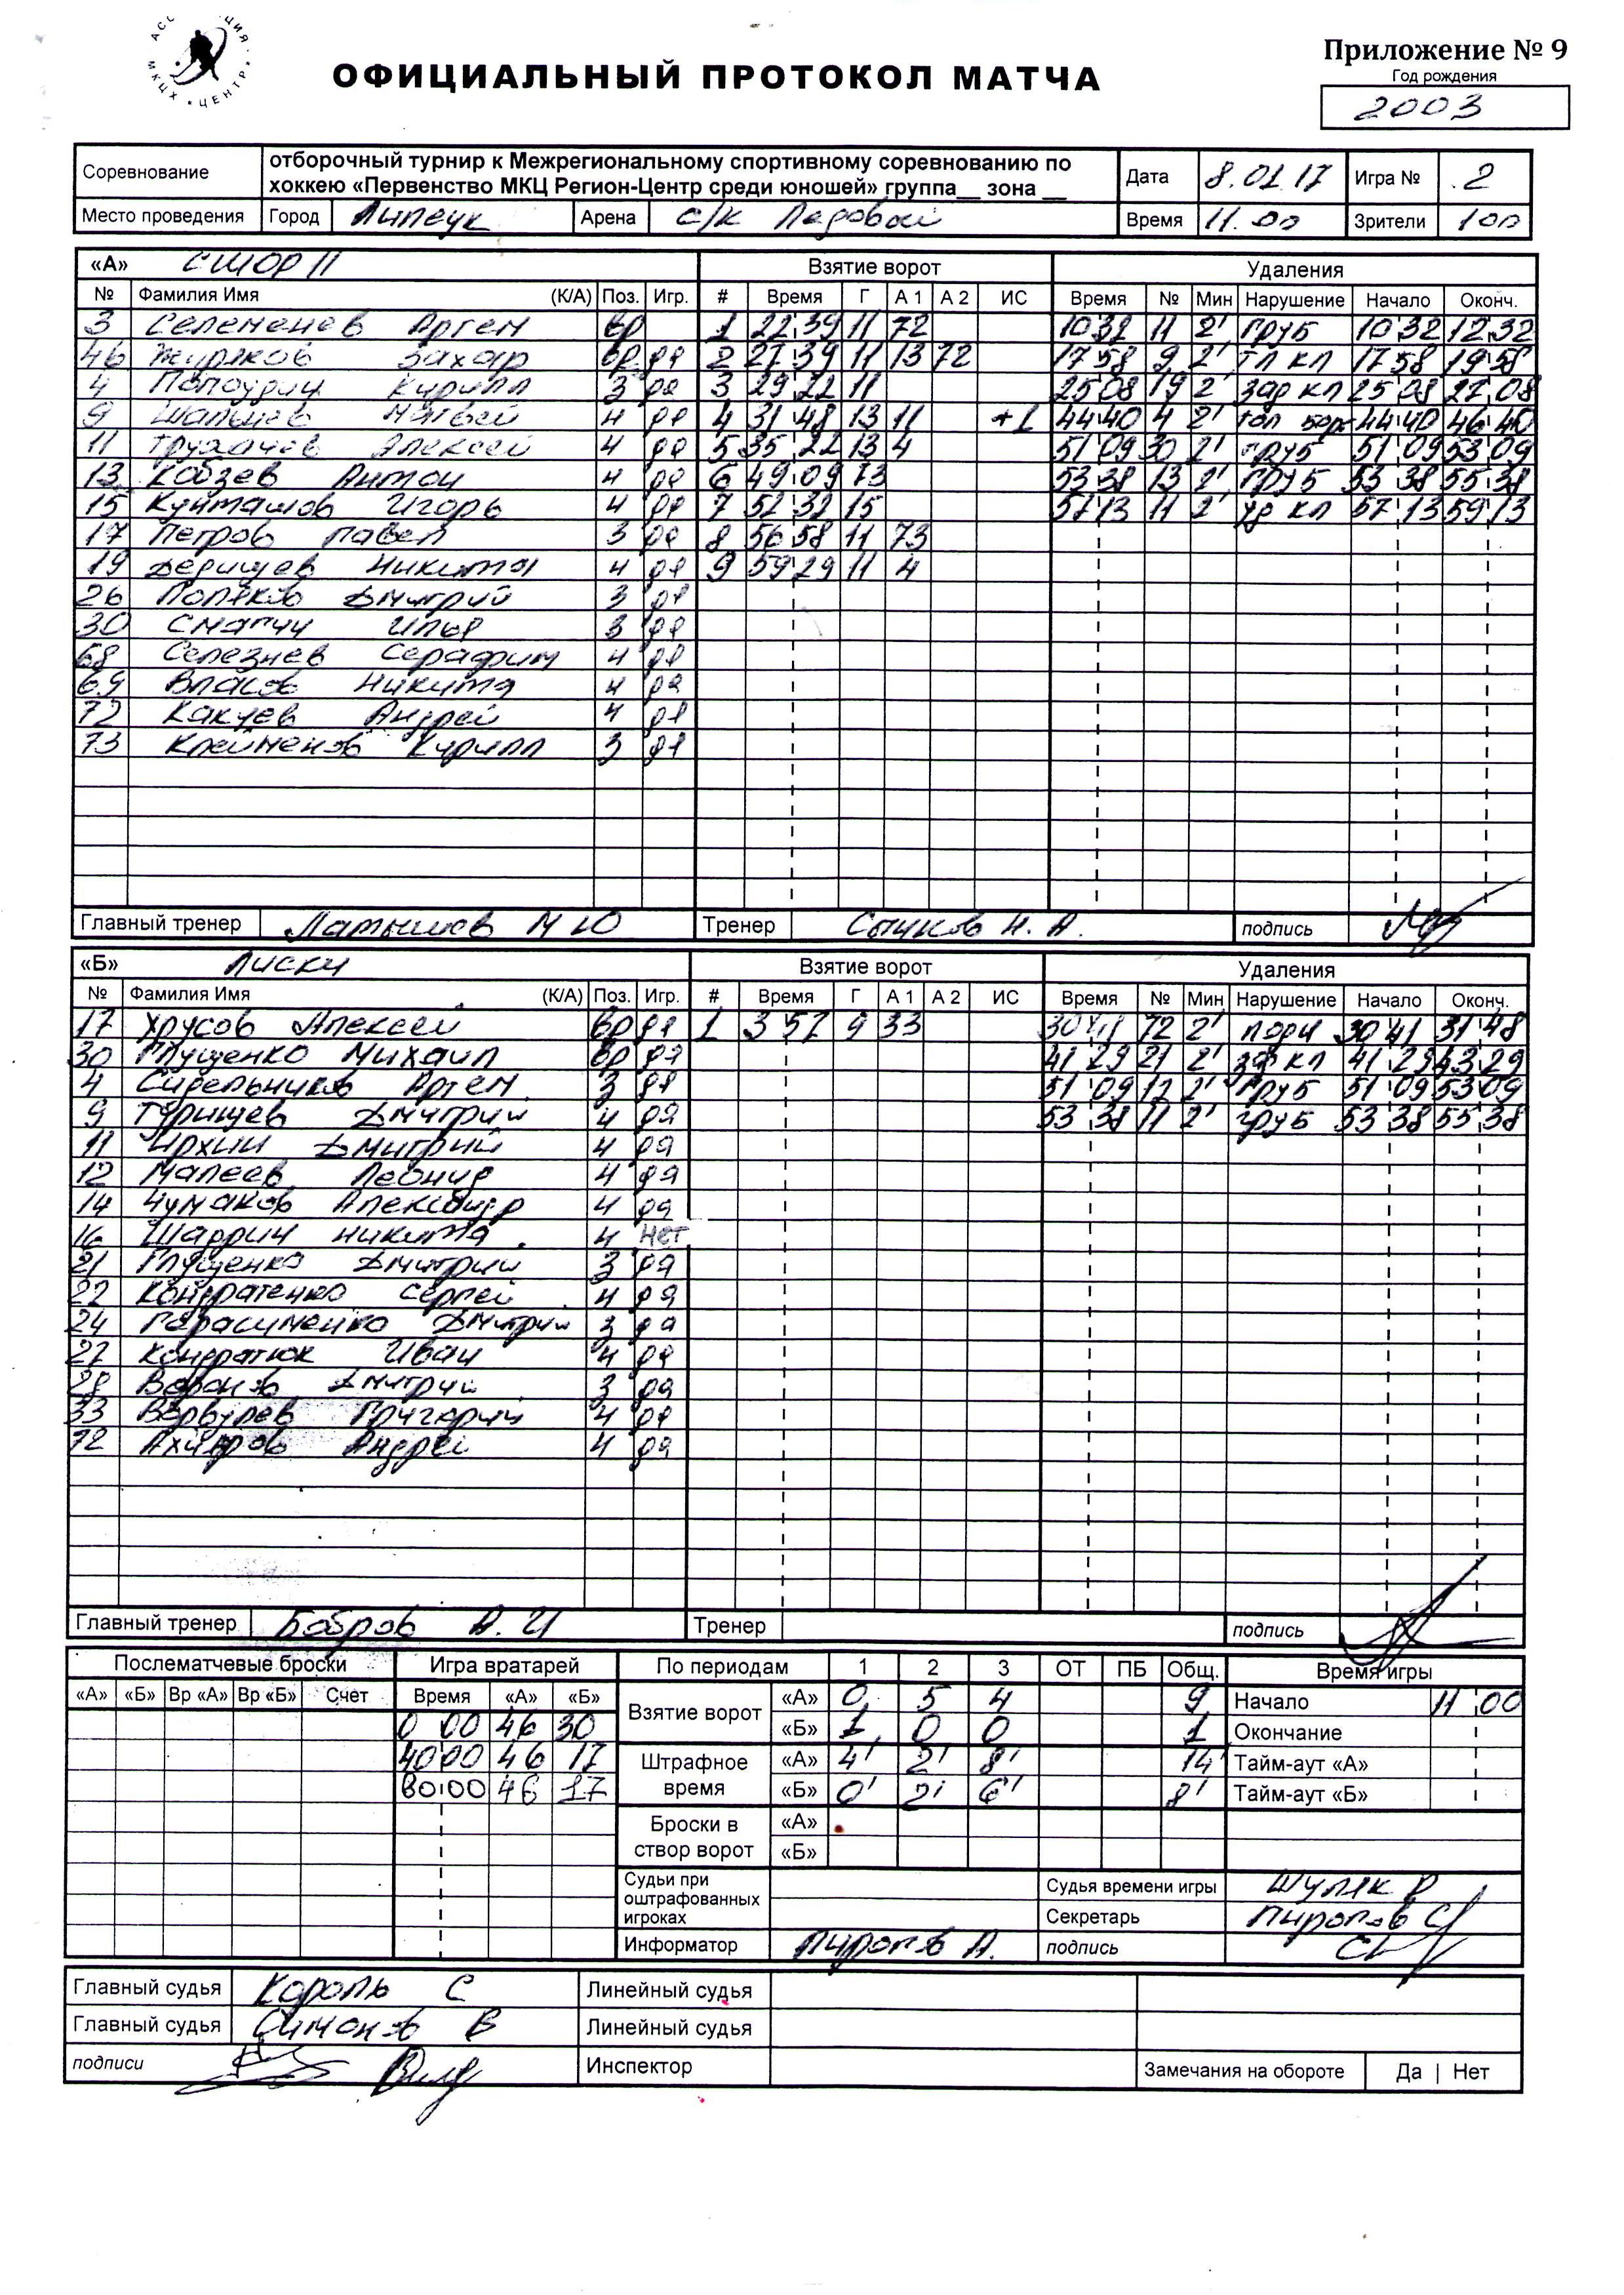 МКЦХ • ЦЕНТР •
Приложение № 9
ОФИЦИАЛЬНЫЙ ПРОТОКОЛ МАТЧА
Год рождения
2003
Соревнование отборочный турнир к Межрегиональному спортивному соревнованию по хоккею «Первенство МКЦ Регион-Центр среди юношей» группа__ зона __ Дата 8.01.17 Игра № 2
Место проведения Город Липецк Арена с/к Ледовый Время 11.00 Зрители 100
«А» СШОР Л Взятие ворот Удаления
№ Фамилия Имя (К/А) Поз. Игр. # Время Г А 1 А 2 ИС Время № Мин Нарушение Начало Оконч.
3 Селеменев Артем вр 1 22 39 11 72 10 32 11 2' груб 10 32 12 32
46 Захар вр да 2 27 39 11 13 72 17 58 9 2' 17 58 19 58
4 Кирилл 3 да 3 29 22 11 25 08 19 2' зад кл 25 08 27 08
9 Матвей 4 да 4 31 48 13 11 +1 44 40 4 2' тол борт 44 40 46 40
11 Трухачев Алексей 4 да 5 35 22 13 4 51 09 30 2' груб 51 09 53 09
13 Кобзев Антон 4 да 6 49 09 73 53 38 13 2' груб 53 38 55 38
15 Куйташов Игорь 4 да 7 52 32 15 57 13 11 2' уд кл 57 13 59 13
17 Петров Павел 3 да 8 56 58 11 73
19 Никита 4 да 9 59 29 11 4
26 Поляков Дмитрий 3 да
30 Илья 3 да
68 Селезнев Серафим 4 да
69 Власов Никита 4 да
72 Какуев Андрей 4 да
73 Клейменов Кирилл 3 да
Главный тренер Латышев М Ю Тренер Сычков Н. А. подпись
«Б» Лиски Взятие ворот Удаления
№ Фамилия Имя (К/А) Поз. Игр. # Время Г А 1 А 2 ИС Время № Мин Нарушение Начало Оконч.
17 Хрусов Алексей вр да 1 3 57 9 33 72 2' 30 41 31 48
30 Глущенко Михаил вр да 41 29 21 2' зад кл 41 29 43 29
4 Сидельников Артем 3 да 51 09 12 2' груб 51 09 53 09
9 Турищев Дмитрий 4 да 53 38 11 2' груб 53 38 55 38
11 Ирхин Дмитрий 4 да
12 Малеев Леонид 4 да
14 Чумаков Александр 4 да
16 Шадрин Никита 4 нет
21 Глущенко Дмитрий 3 да
22 Кондратенко Сергей 4 да
24 Герасименко Дмитрий 3 да
27 Кондратюк Иван 4 да
28 Воронов Дмитрий 3 да
33 Григорий 4 да
72 Андрей 4 да
Главный тренер Бобров А. И Тренер подпись
Послематчевые броски Игра вратарей По периодам 1 2 3 ОТ ПБ Общ. Время игры
«А» «Б» Вр «А» Вр «Б» Счет Время «А» «Б» Взятие ворот «А» 0 5 4 9 Начало 11 00
0 00 46 30 «Б» 1 0 0 1 Окончание
40 00 46 17 Штрафное время «А» 4' 2' 8' 14' Тайм-аут «А»
60:00 46 17 «Б» 0' 2' 6' 8' Тайм-аут «Б»
Броски в створ ворот «А»
«Б»
Судьи при оштрафованных игроках Судья времени игры Шуляк Р
Секретарь Пиропов С
Информатор Пиропов А. подпись
Главный судья Король С Линейный судья
Главный судья Симонов В Линейный судья
подписи Инспектор Замечания на обороте Да | Нет